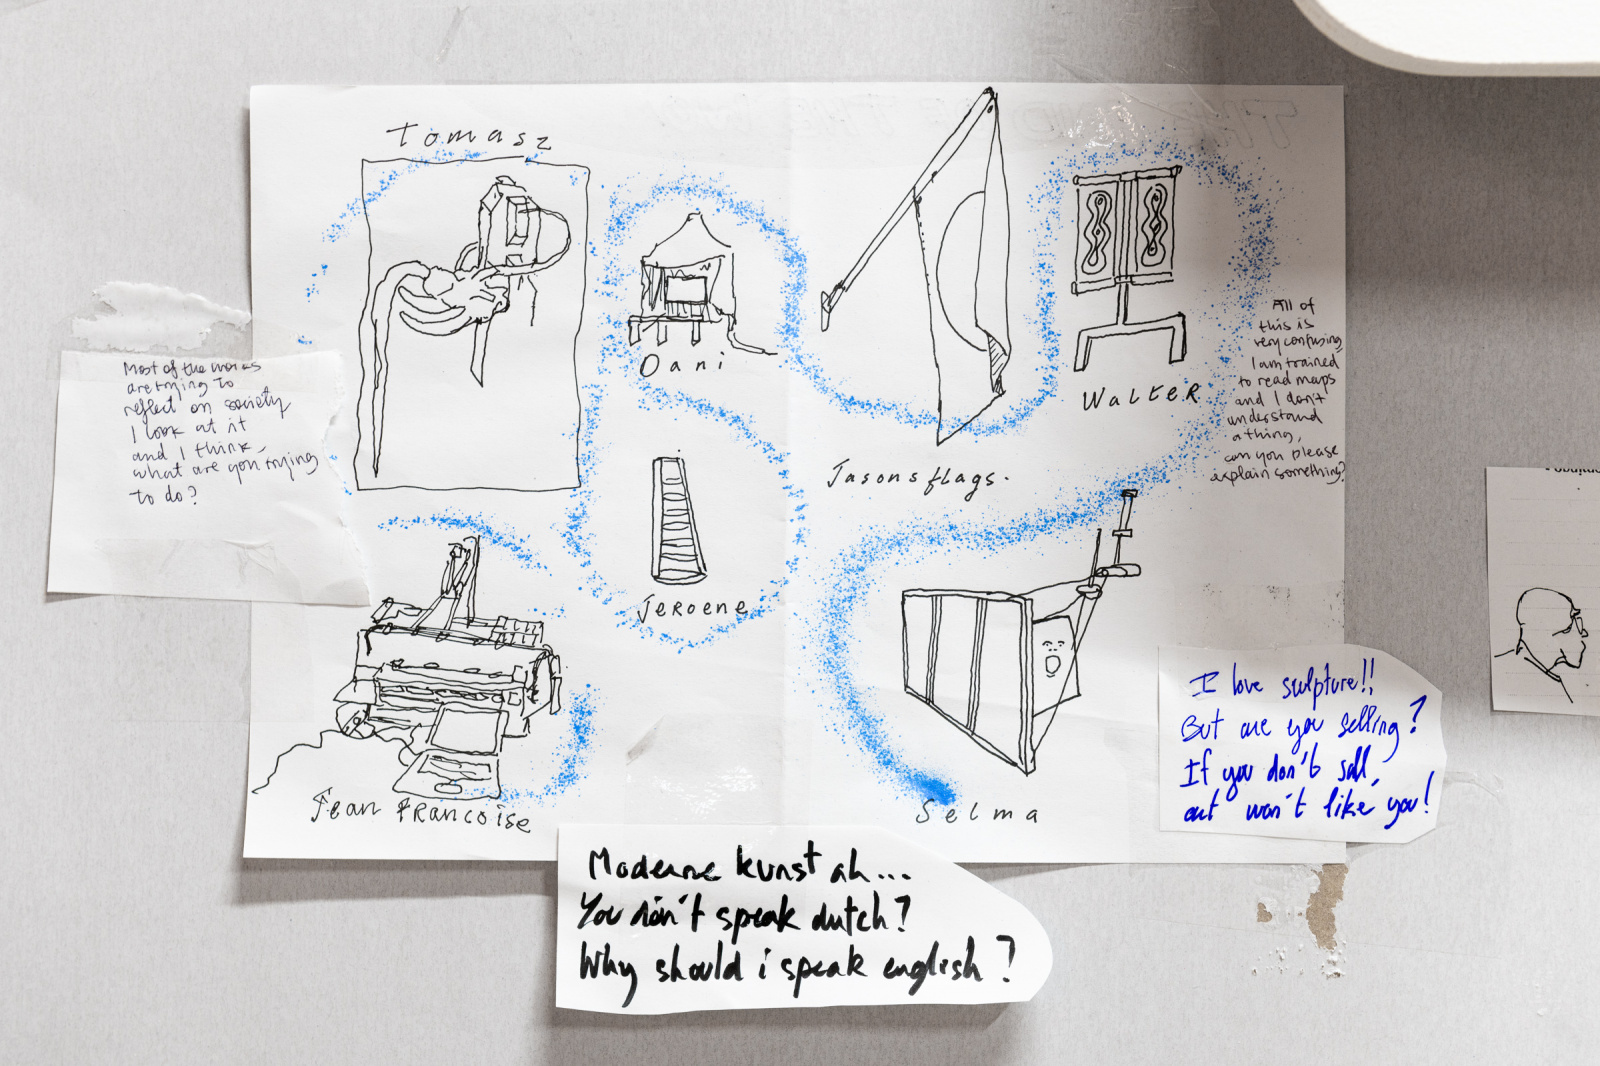 Tomasz
Oani
Jasonsflags.
Walter
Jeroene
Jean Francoise
Selma
Most of the works
are trying to
reflect on society
I look at it
and I think,
what are you trying
to do?
All of
this is
very confusing,
I am trained
to read maps
and I don't
understand
a thing,
can you please
explain something?
I love sculpture!!
But are you selling?
If you don't sell,
won't like you!
Moderne kunst ah...
You don't speak dutch?
Why should i speak english?